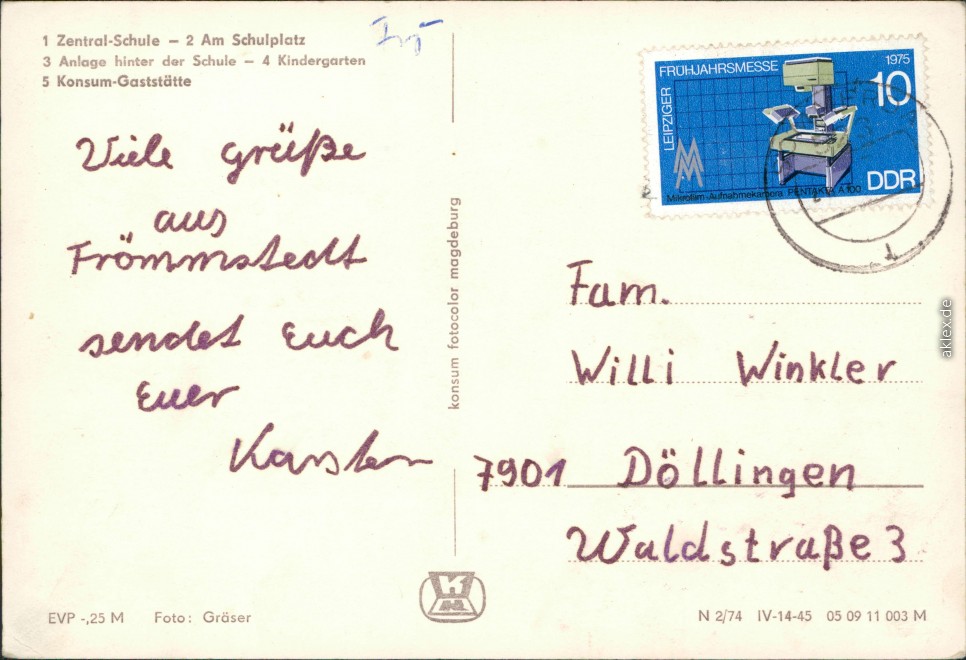 1 Zentral-Schule – 2 Am Schulplatz
3 Anlage hinter der Schule – 4 Kindergarten
5 Konsum-Gaststätte
Viele Grüße
aus
Frömmstedt
sendet Euch
Euer
Karsten
konsum fotocolor magdeburg
LEIPZIGER
FRÜHJAHRSMESSE
1975
10
MM
Mikrofilm-Aufnahmekamera PENTAKTA A 100
DDR
Fam.
Willi Winkler
7901 Döllingen
Waldstraße 3
EVP -,25 M Foto: Gräser
N 2/74 IV-14-45 05 09 11 003 M
aklex.de